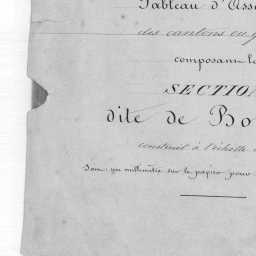 Tableau d'Ass
des cantons ou
composant le
SECTION
dite de Bo
construit à l'échelle
Som: un millimètre sur le papier pour